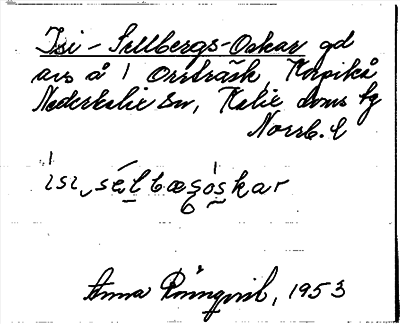 Isi-Sellbergs-Oskar gd
avs å 1 Orrträsk, Korpikå
Nederkalix sn, Kalix doms fg
Norrb. l
ısı sélbæsóskar
Anna Rönnqvist, 1953